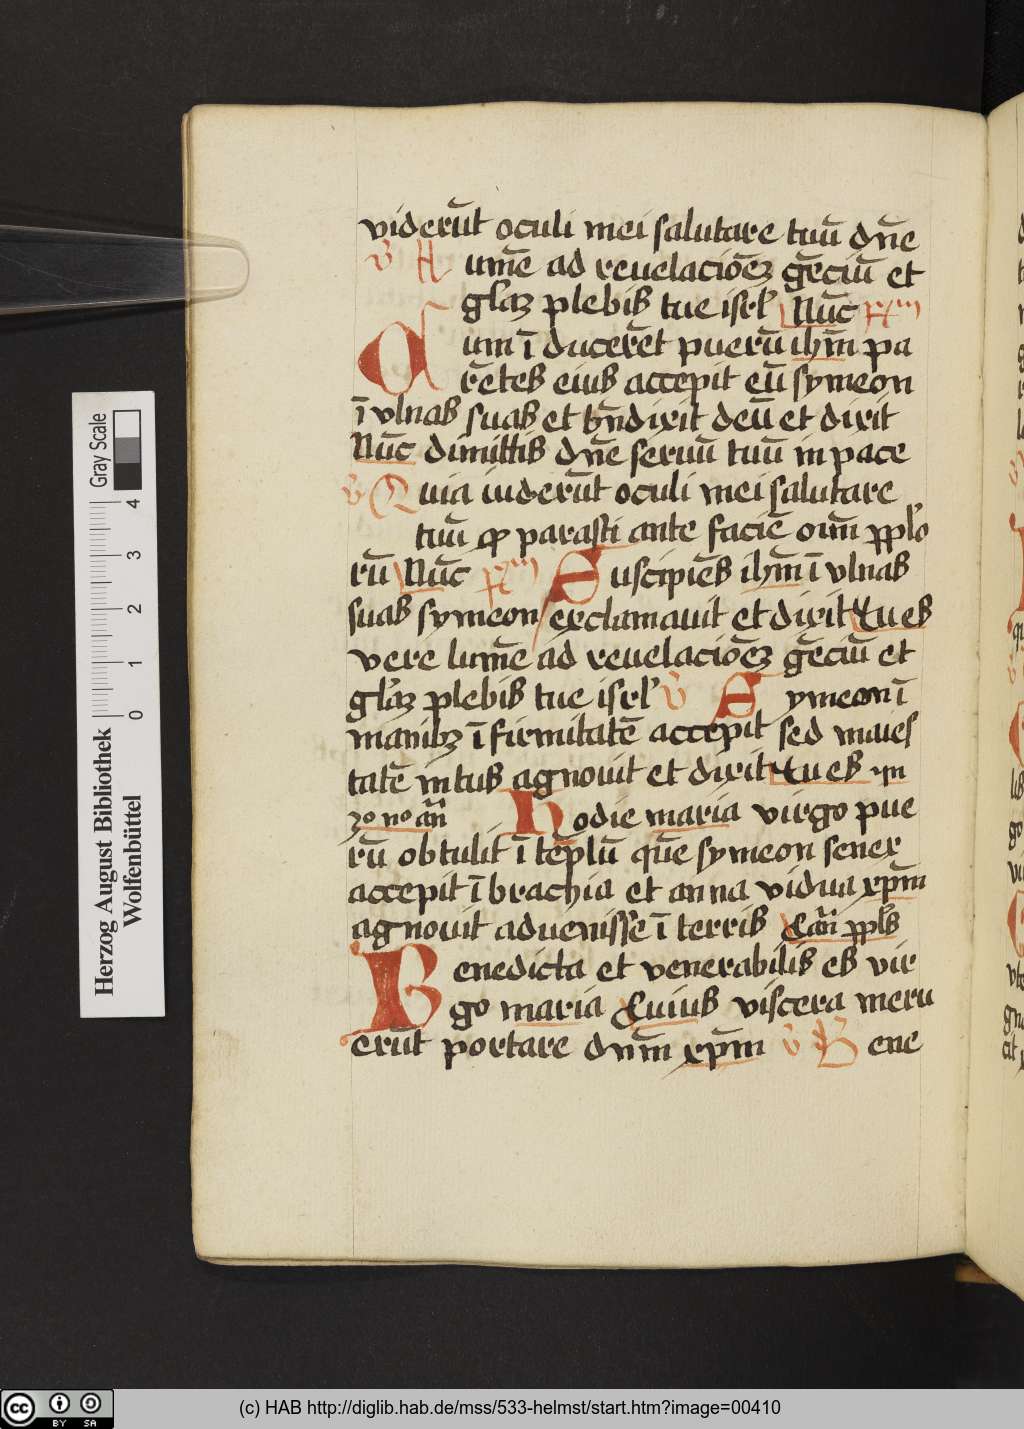 viderūt oculi mei salutare tuū dn̄e
v̄ Lumē ad reuelacioēꝫ gēciū et
gl'aꝫ plebis tue isrl' Nūc
Cum ī ducerēt puerū ihm̄ pa
rētes eius accepit eū symeon
ī vlnas suas et bn̄dixit deū et dixit
Nūc dimittis dn̄e seruū tuū in pace
v̄ Quia uiderūt oculi mei salutare
tuū qd parasti ante faciē oim̄ ppl'o
rū Nūc Suscipiēs ihm̄ ī vlnas
suas symeon exclamauit et dixit Tu es
vere lumē ad reuelacioēꝫ gēciū et
gl'aꝫ plebis tue isrl' v̄ Symeon ī
manibꝫ ī firmitatē accepit sed maies
tatē intus agnouit et dixit Tu es in
ꝫo no an̄ Hodie maria virgo pue
rū obtulit ī tēplū quē symeon senex
accepit ī brachia et anna vidua xpm̄
agnouit aduenisse ī terris Can̄ ppl's
Benedicta et venerabilis es vir
go maria Cuius viscera meru
erūt portare dnm̄ xpm̄ v̄ Bene
Herzog August Bibliothek
Wolfenbüttel
Gray Scale
0 1 2 3 4
cc BY SA
(c) HAB http://diglib.hab.de/mss/533-helmst/start.htm?image=00410